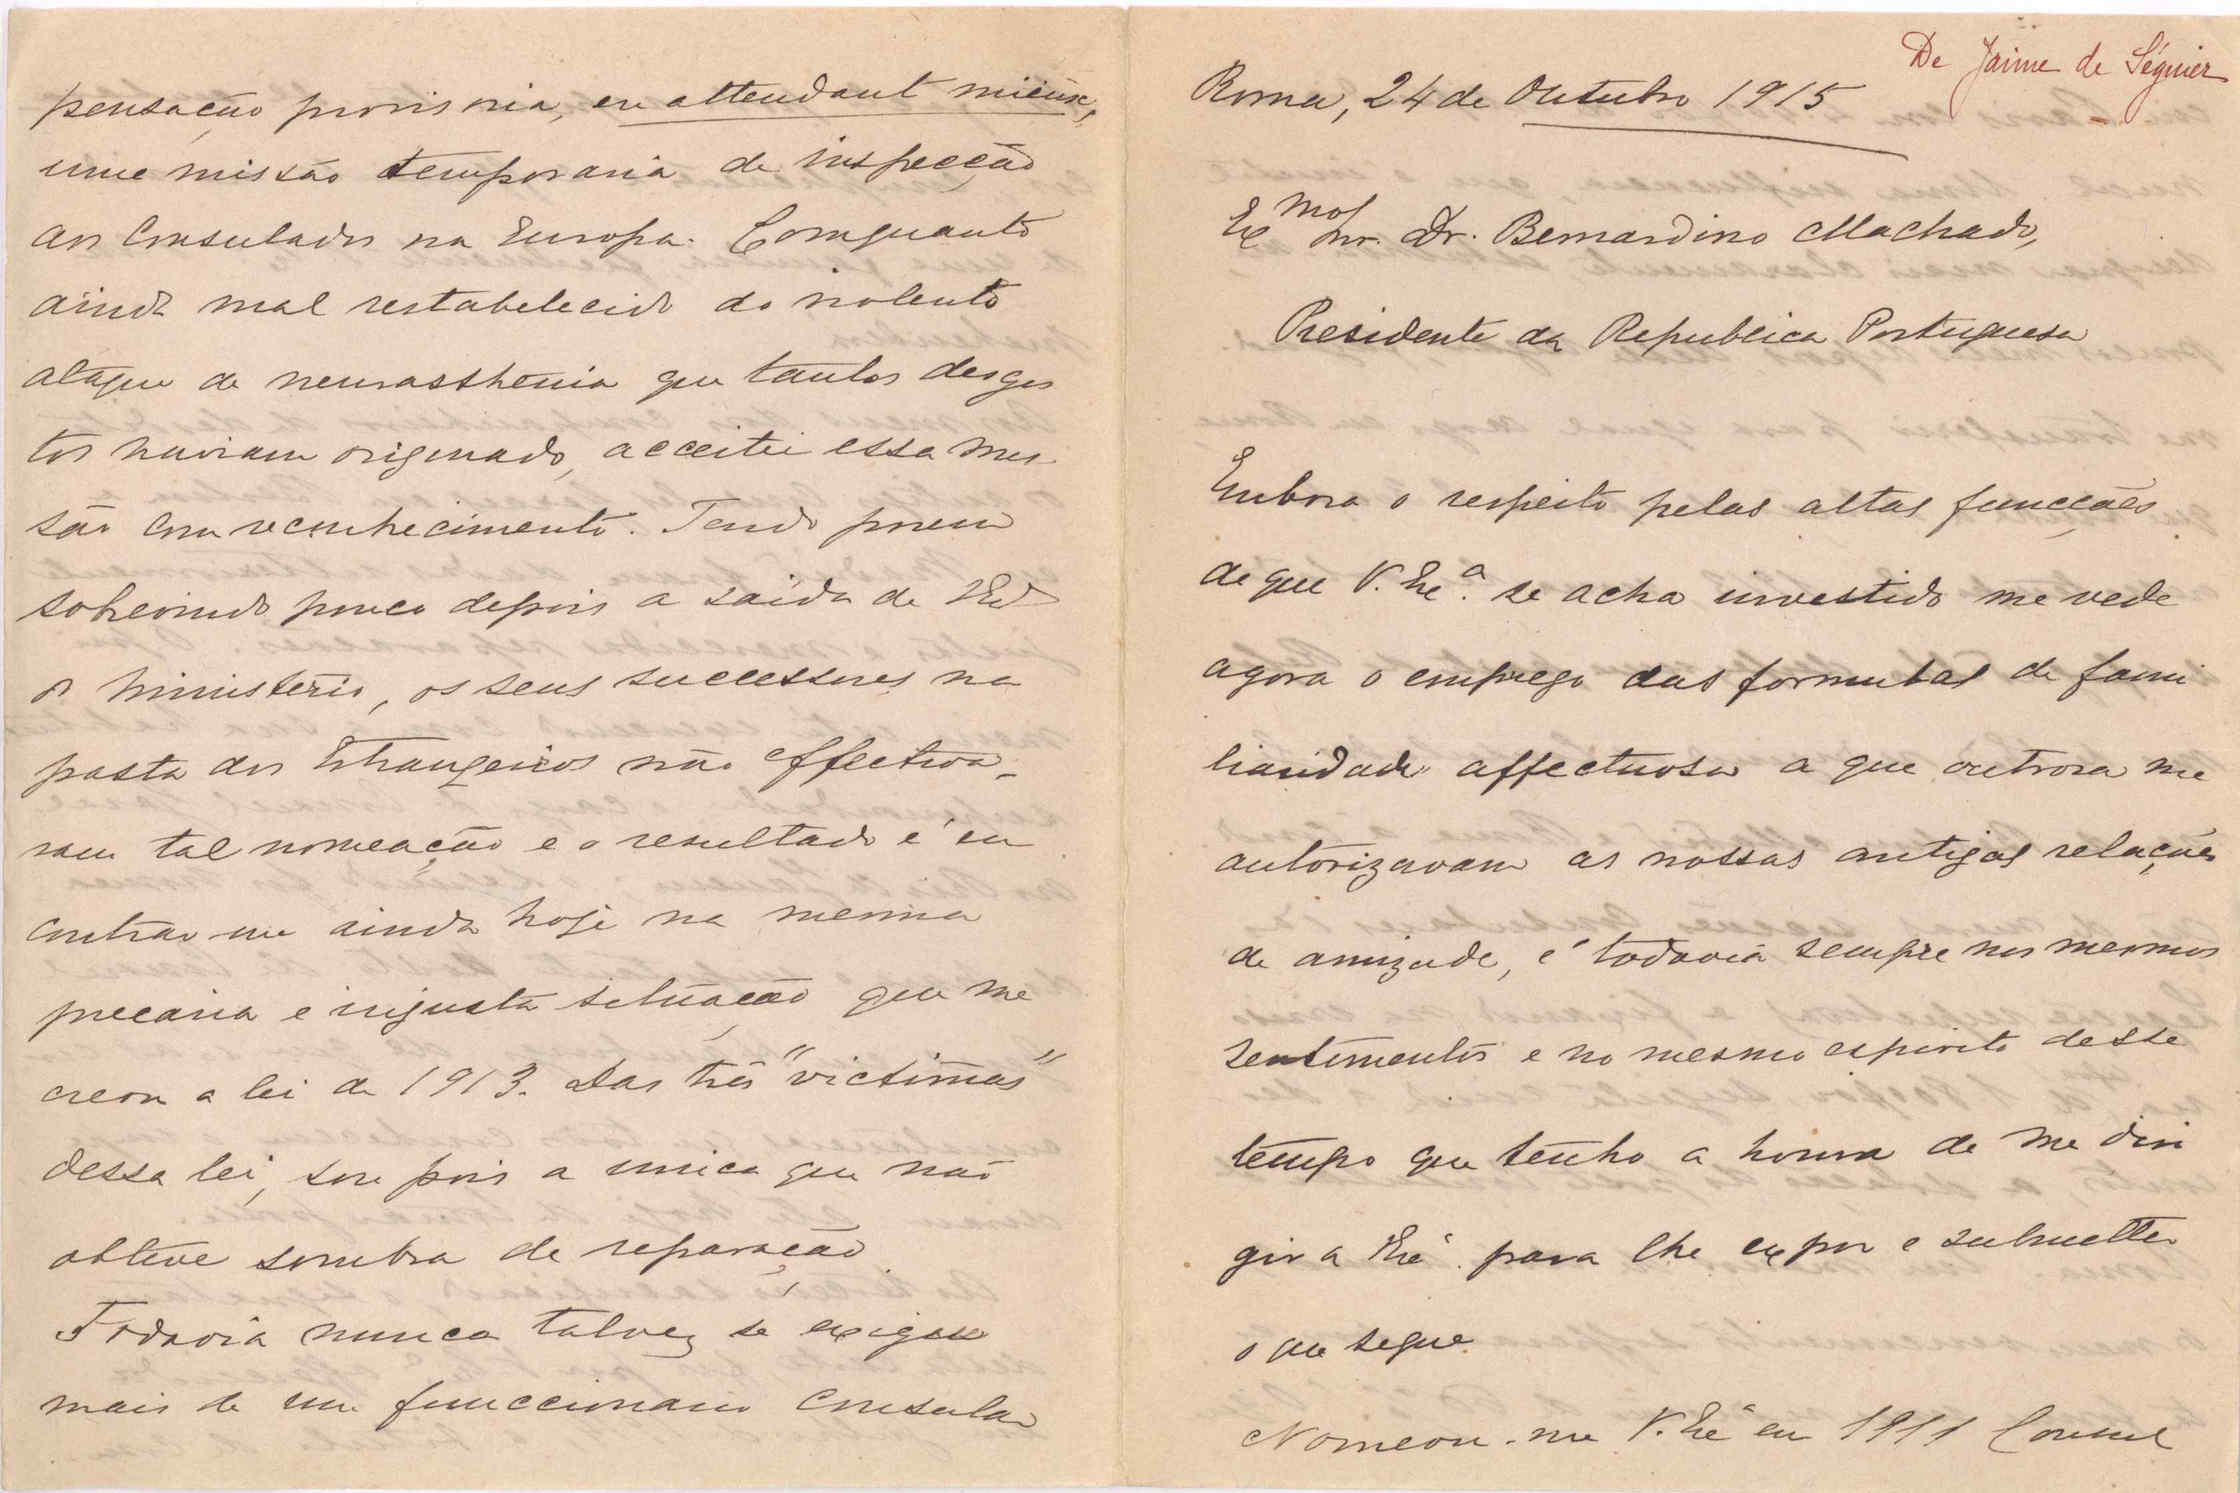 pensação provisoria, en attendant mieux,
uma missão temporaria de inspecção
aos Consulados na Europa. Comquanto
ainda mal restabelecido do violento
ataque de neurasthenia que tantos desgos
tos haviam originado, acceitei essa mis-
são com reconhecimento. Tendo porem
sobrevindo pouco depois a saída de
o Ministerio, os seus successores na
pasta dos Estrangeiros não effectiva-
ram tal nomeação e o resultado é en
contrar me ainda hoje na mesma
precaria e injusta situação que me
creou a lei de 1913. Das três "victimas"
dessa lei, sou pois a unica que não
obteve sombra de reparação.
Todavia nunca talvez se exigisse
mais de um funccionario consular
De Jaime de Séguier
Roma, 24 de Outubro 1915
Exmo Snr. Dr. Bernardino Machado,
Presidente da Republica Portuguesa
Embora o respeito pelas altas funcções
de que V. Exª. se acha investido me vede
agora o emprego das formulas de fami
liaridade affectuosa a que outrora me
autorizavam as nossas antigas relações
de amizade, é todavia sempre nos mesmos
sentimentos e no mesmo espirito desse
tempo que tenho a honra de me diri
gir a Exª. para lhe expor e submetter
o que segue.
Nomeou-me V. Exª em 1911 Consul